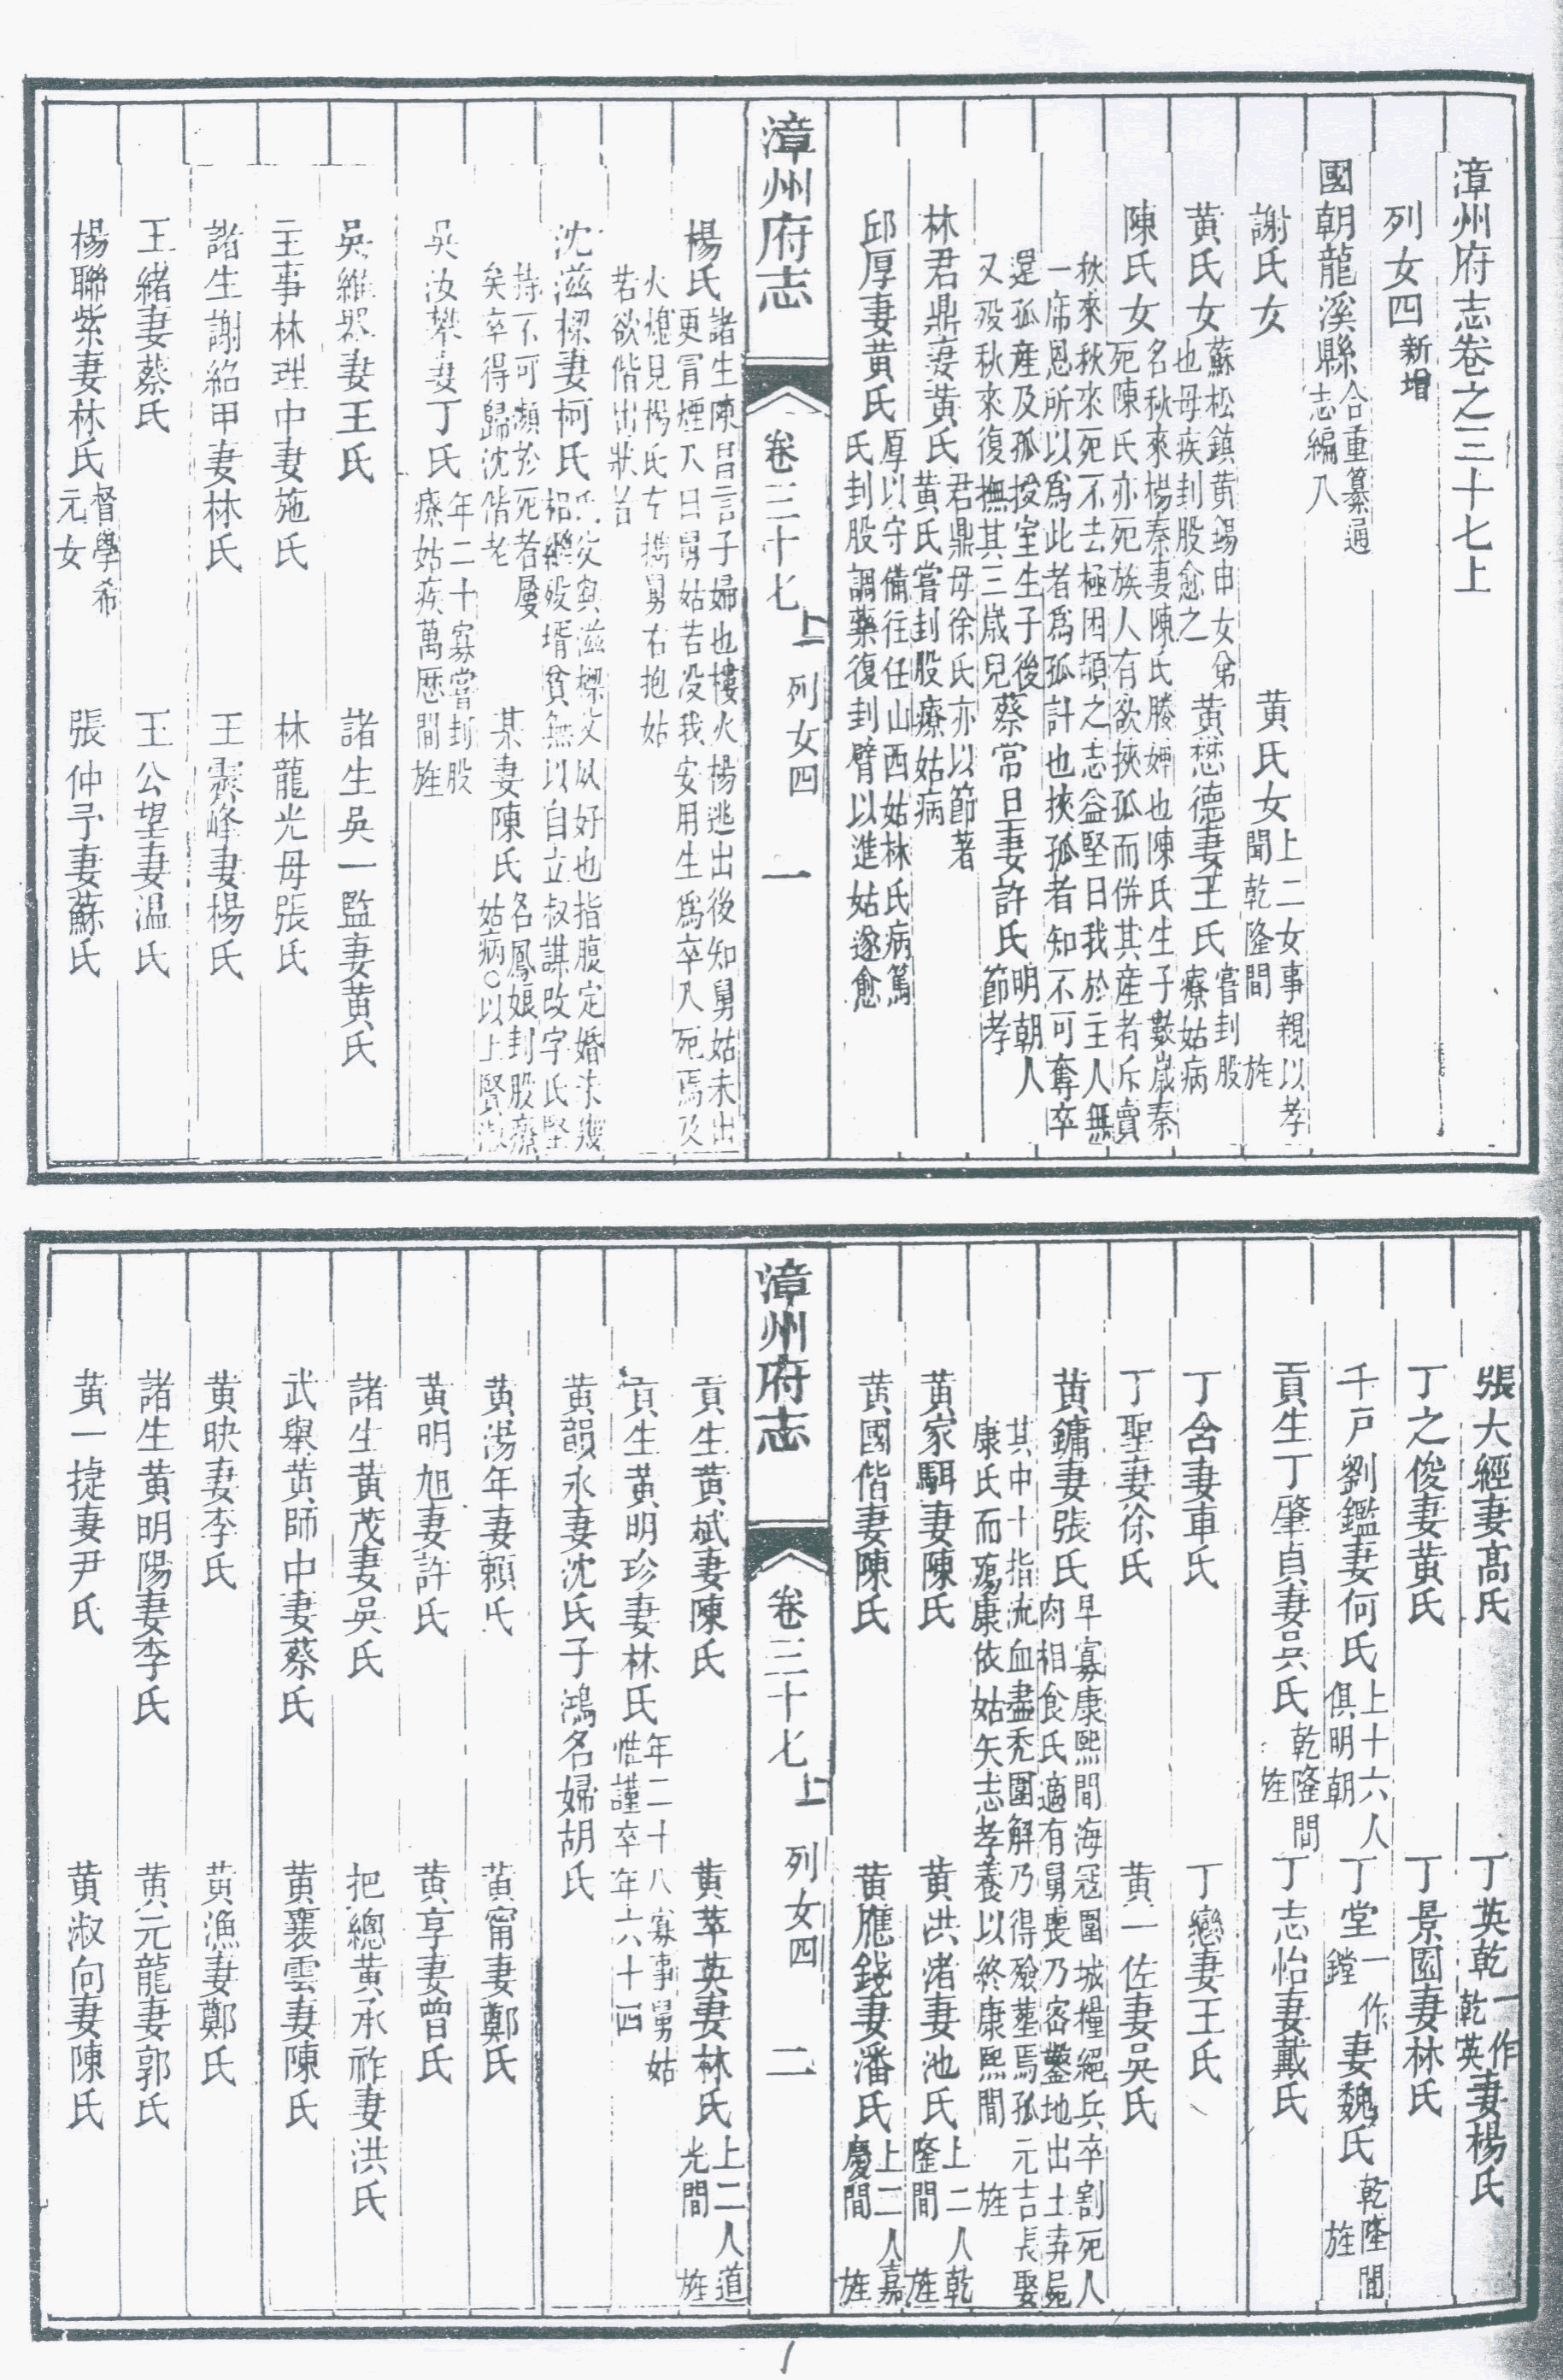 漳州府志卷之三十七上
列女四新增
國朝龍溪縣合重纂通志編入
謝氏女 黃氏女上二女事親以孝聞乾隆間旌
黃氏女蘇松鎮黃錫申女弟也母疾刲股愈之 黃懋德妻王氏嘗刲股療姑病
陳氏女名秋來楊秦妻陳氏媵婢也陳氏生子數歲秦死陳氏亦死族人有欲挾孤而併其產者斥賣
秋來秋來死不去極困頓之志益堅曰我於主人無一席恩所以為此者為孤計也挾孤者知不可奪卒
還孤產及孤授室生子後又歿秋來復撫其三歲兒 蔡常日妻許氏明朝人節孝
林君鼎妻黃氏君鼎母徐氏亦以節著黃氏嘗刲股療姑病
邱厚妻黃氏厚以守備往任山西姑林氏病篤氏刲股調藥復刲臂以進姑遂愈
漳州府志 卷三十七上 列女四 一
楊氏諸生陳昌言子婦也樓火楊逃出後知舅姑未出更冒煙入曰舅姑若沒我安用生為卒入死焉及
火熄見楊氏左攜舅右抱姑若欲偕出狀者
沈滋樑妻柯氏氏父與滋樑父以好也指腹定婚未幾相繼歿壻貧無以自立叔謀改字氏堅
持不可瀕於死者屢矣卒得歸沈偕老 某妻陳氏名鳳娘刲股療姑病○以上賢淑
吳汝攀妻丁氏年二十寡嘗刲股療姑疾萬歷間旌
吳維 妻王氏 諸生吳一監妻黃氏
主事林理中妻施氏 林龍光母張氏
諸生謝紹甲妻林氏 王霽峰妻楊氏
王緒妻蔡氏 王公望妻溫氏
楊聯紫妻林氏督學希元女 張仲予妻蘇氏
張大經妻高氏 丁英乾一作乾英妻楊氏
丁之俊妻黃氏 丁景園妻林氏
千戶劉鑑妻何氏上十六人俱明朝 丁堂一作鏜妻魏氏乾隆間旌
貢生丁肇貞妻吳氏乾隆間旌 丁志怡妻戴氏
丁含妻車氏 丁戀妻王氏
丁聖妻徐氏 黃一佐妻吳氏
黃鏞妻張氏早寡康熙間海寇圍城糧絕兵卒割死人肉相食氏適有舅喪乃密鑿地出土弆屍
其中十指流血盡禿圍解乃得殮塟焉孤元吉長娶康氏而殤康依姑矢志孝養以終康熙間旌
黃家駬妻陳氏 黃洪渚妻池氏上二人乾隆間旌
黃國偕妻陳氏 黃應錢妻潘氏上二人嘉慶間旌
漳州府志 卷三十七上 列女四 二
貢生黃斌妻陳氏 黃萃英妻林氏上二人道光間旌
貢生黃明珍妻林氏年二十八寡事舅姑惟謹卒年六十四
黃韻永妻沈氏子鴻名婦胡氏
黃湯年妻賴氏 黃甯妻鄭氏
黃明旭妻許氏 黃享妻曾氏
諸生黃茂妻吳氏 把總黃承祚妻洪氏
武舉黃師中妻蔡氏 黃襄雲妻陳氏
黃映妻李氏 黃漁妻鄭氏
諸生黃明陽妻李氏 黃元龍妻郭氏
黃一捷妻尹氏 黃淑向妻陳氏